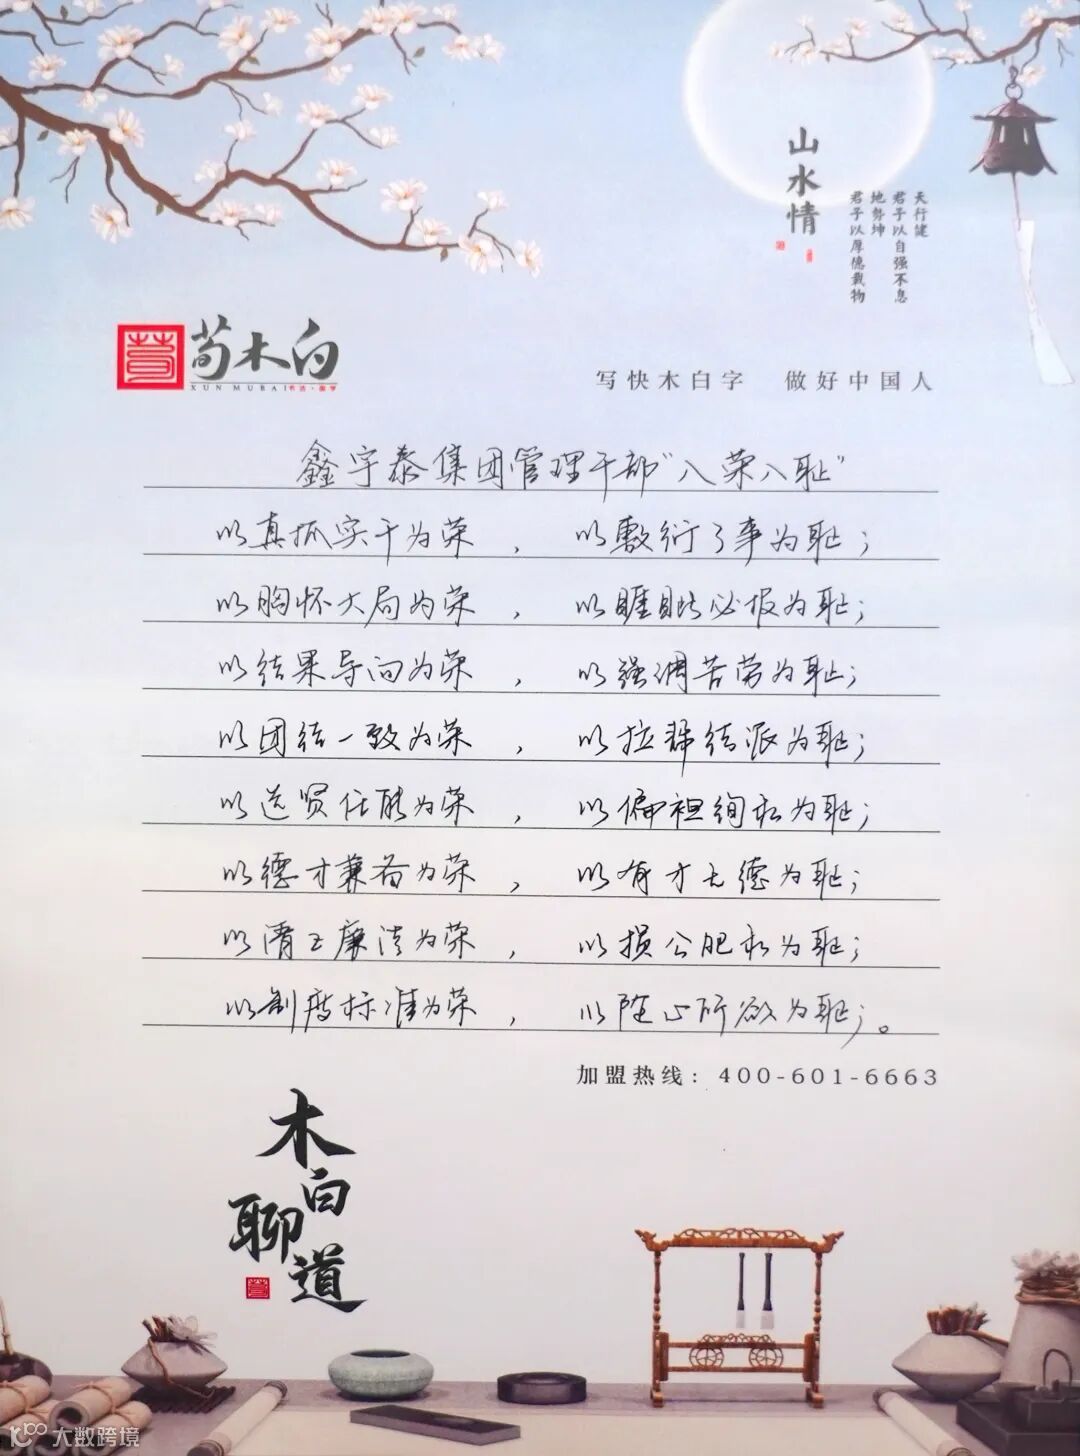 山水情
天行健
君子以自强不息
地势坤
君子以厚德载物
荀木白
XUN MUBAI 书法·国学
写快木白字 做好中国人
鑫宇泰集团管理干部“八荣八耻”
以真抓实干为荣 , 以敷衍了事为耻;
以胸怀大局为荣 , 以睚眦必报为耻;
以结果导向为荣 , 以强调苦劳为耻;
以团结一致为荣 , 以拉帮结派为耻;
以选贤任能为荣 , 以偏袒徇私为耻;
以德才兼备为荣 , 以有才无德为耻;
以清正廉洁为荣 , 以损公肥私为耻;
以制度标准为荣 , 以随心所欲为耻;。
加盟热线: 400-601-6663
木白聊道
大数跨境